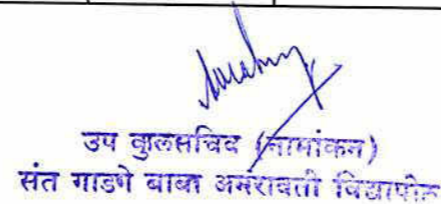 उप कुलसचिव (नामांकन)
संत गाडगे बाबा अमरावती विद्यापीठ